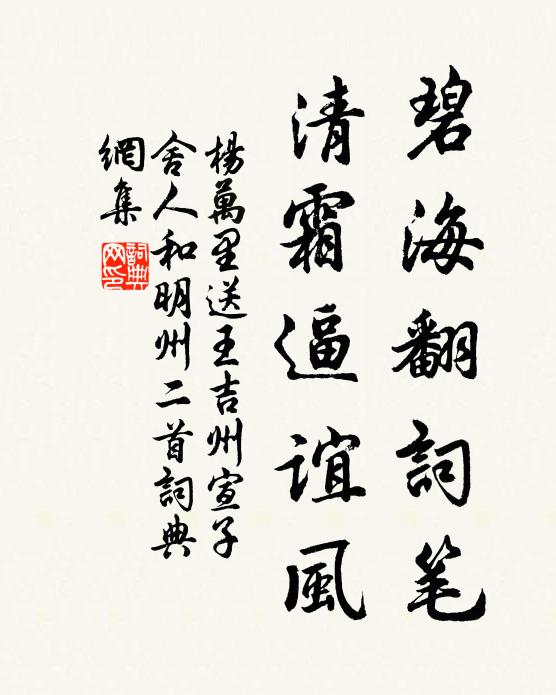 碧海翻詞笔
清霜逼誼風
楊萬里送王吉州宣子
舍人和明州二首詞典
網集
詞典
网印